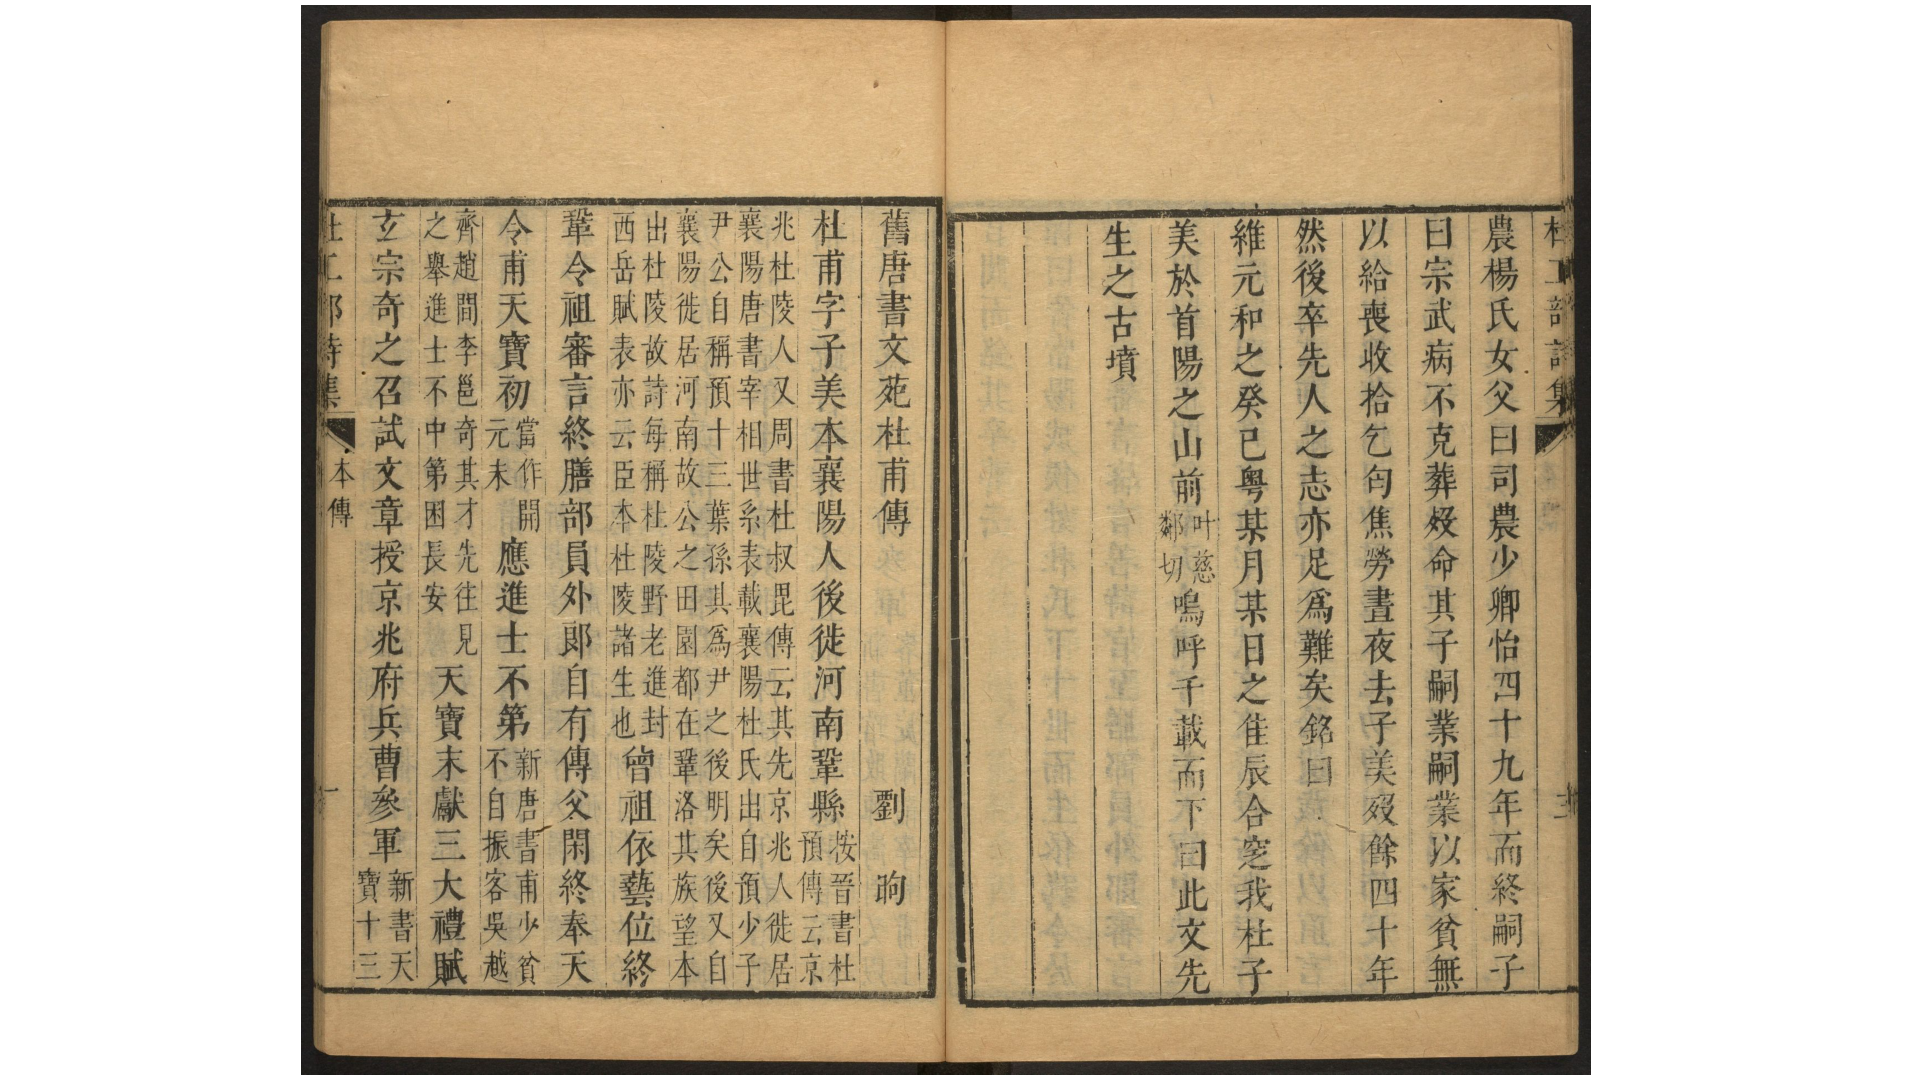 杜工部詩集
農楊氏女父曰司農少卿怡四十九年而終嗣子
曰宗武病不克葬歿命其子嗣業嗣業以家貧無
以給喪收拾乞匄焦勞晝夜去子美歿餘四十年
然後卒先人之志亦足爲難矣銘曰
維元和之癸巳粵某月某日之隹辰合窆我杜子
美於首陽之山前叶慈鄰切嗚呼千載而下曰此文先
生之古墳
舊唐書文苑杜甫傳 劉昫
杜甫字子美本襄陽人後徙河南鞏縣按晉書杜預傳云京
兆杜陵人又周書杜叔毘傳云其先京兆人徙居
襄陽唐書宰相世系表載襄陽杜氏出自預少子
尹公自稱預十三葉孫其爲尹之後明矣後又自
襄陽徙居河南故公之田園都在鞏洛其族望本
出杜陵故詩每稱杜陵野老進封
西岳賦表亦云臣本杜陵諸生也曾祖依藝位終
鞏令祖審言終膳部員外郎自有傳父閑終奉天
令甫天寶初當作開元末應進士不第新唐書甫少貧不自振客吳越
齊趙間李邕奇其才先往見之舉進士不中第困長安天寶末獻三大禮賦
玄宗奇之召試文章授京兆府兵曹參軍新書天寶十三
杜工部詩集 本傳 一